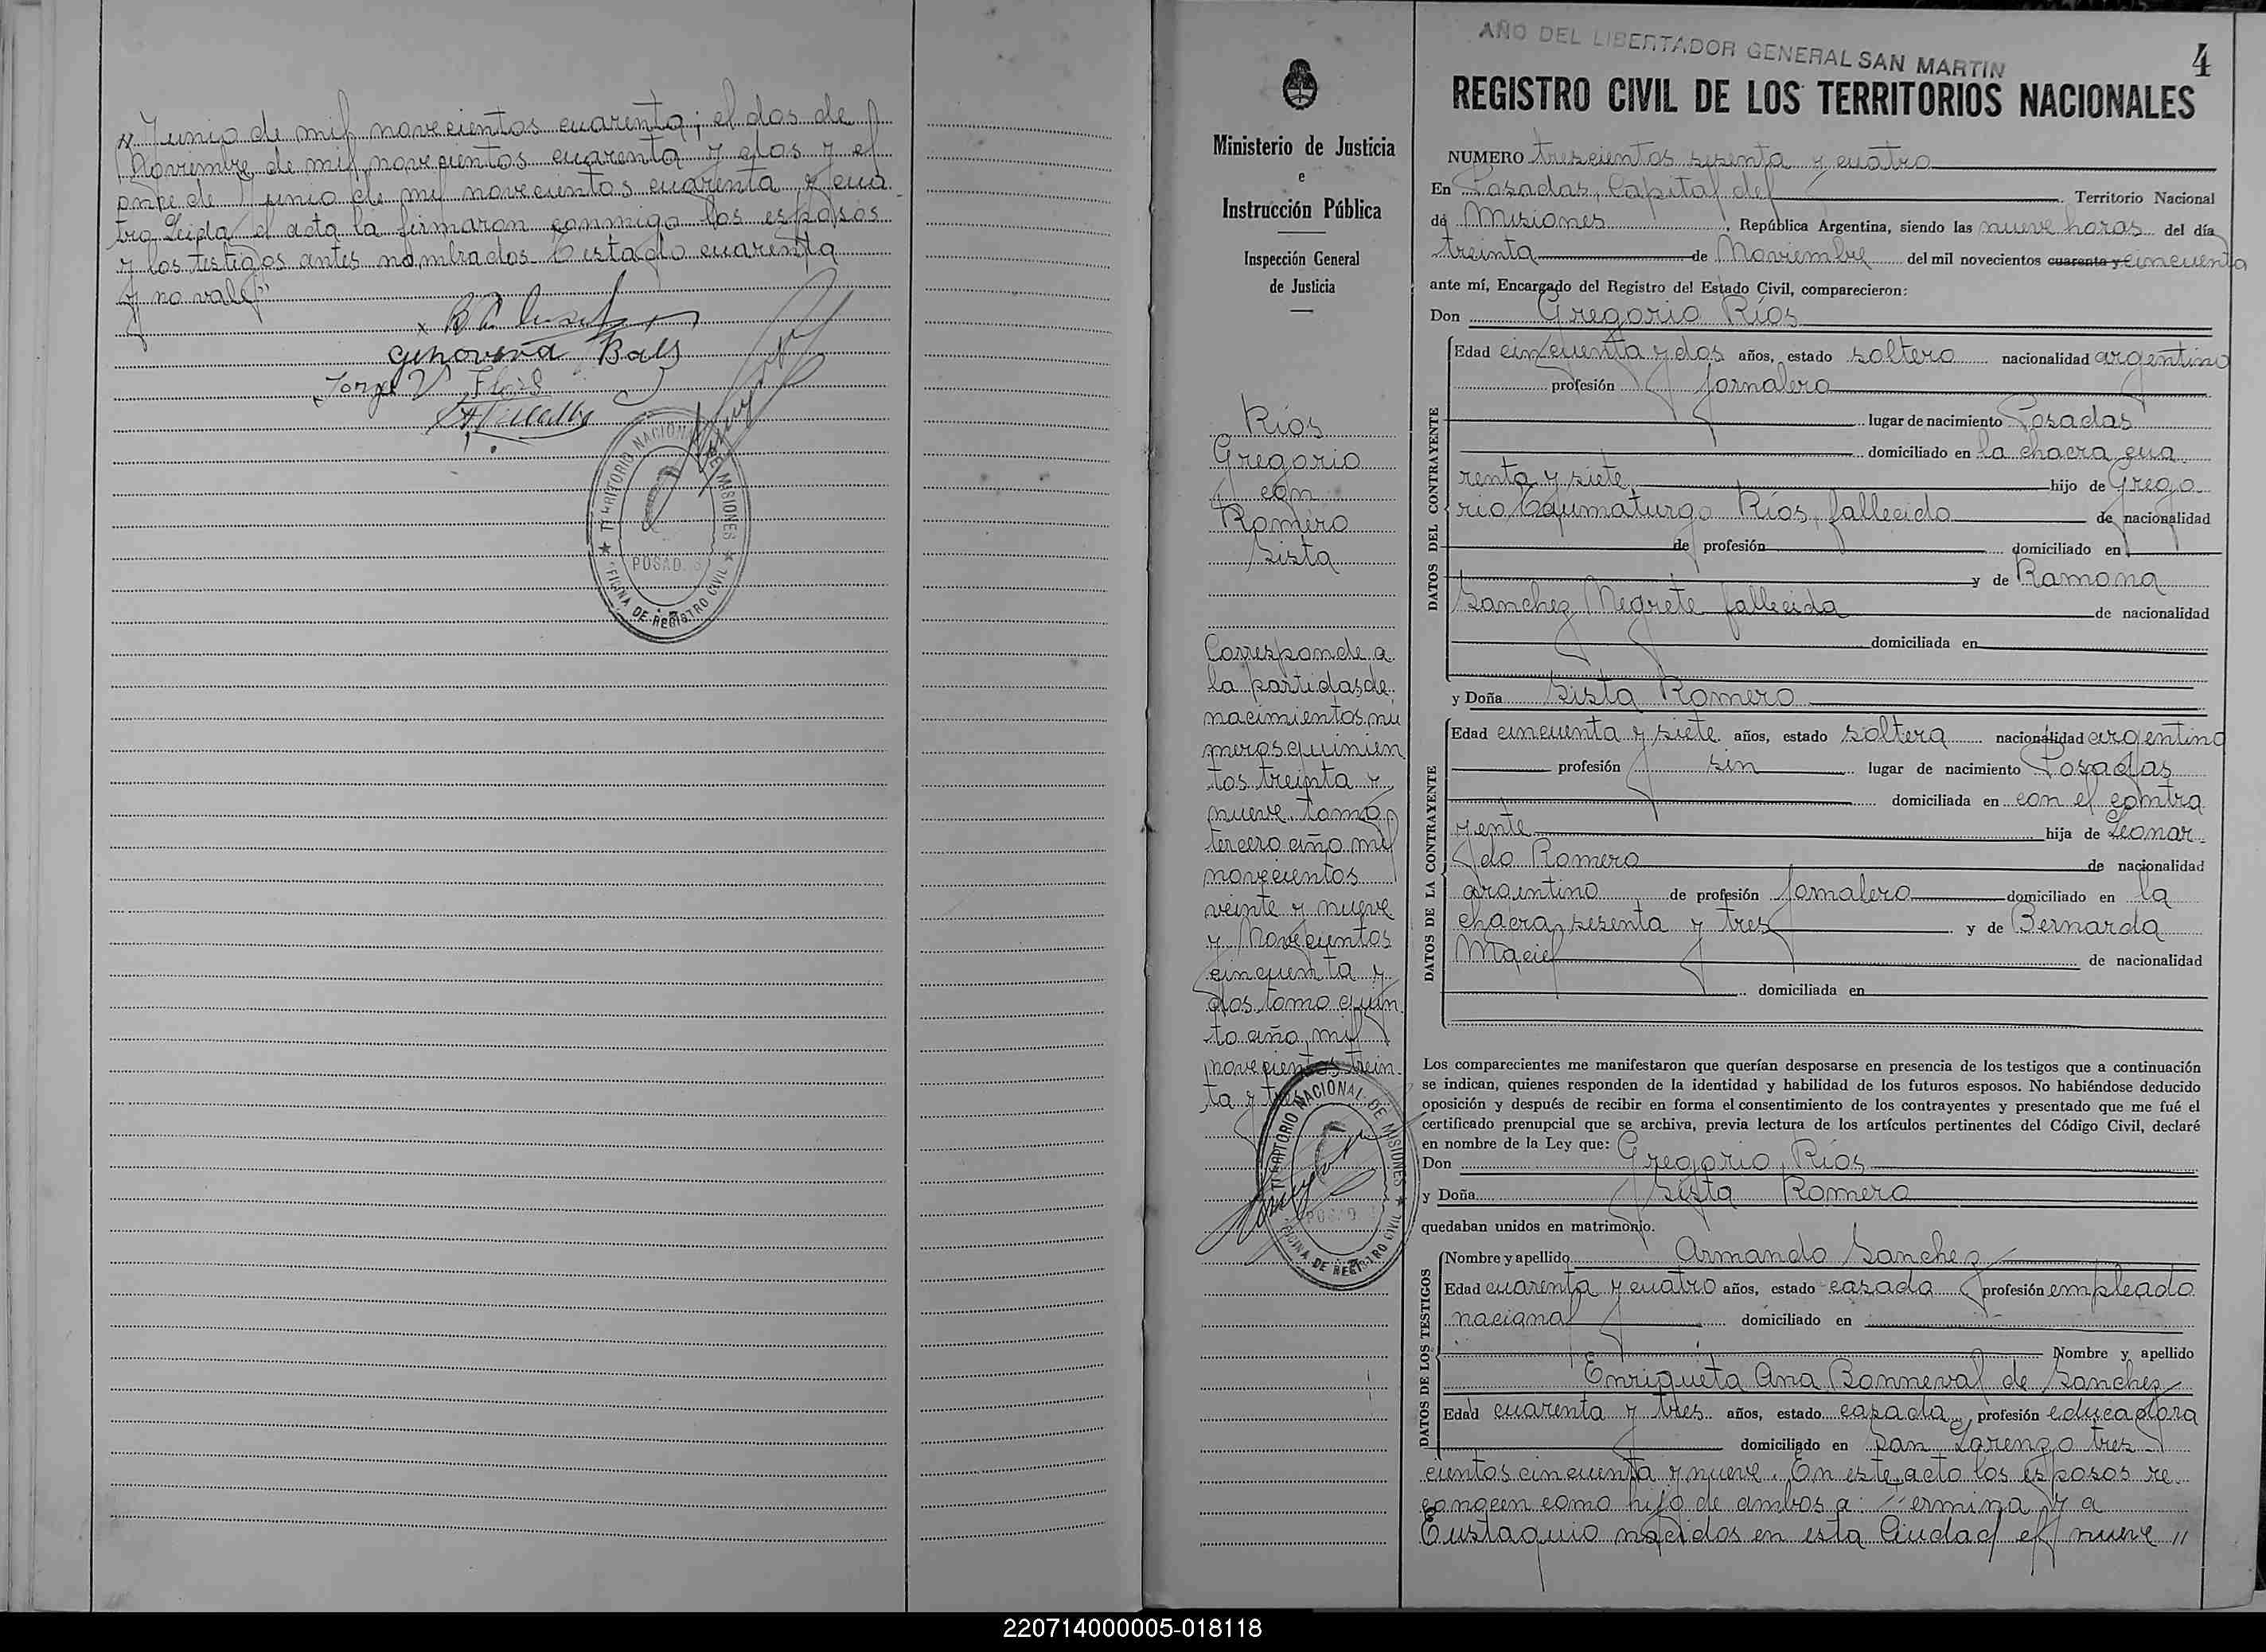 Junio de mil novecientos cuarenta; el dos de
Noviembre de mil novecientos cuarenta y dos y el
once de Junio de mil novecientos cuarenta y cua-
tro. Leída el acta la firmaron conmigo los esposos
y los testigos antes nombrados. Testado cuarenta
y no vale"
Genoveva Báez
Jorge V. Flores
TERRITORIO NACIONAL DE MISIONES
POSADAS
OFICINA DE REGISTRO CIVIL
Ministerio de Justicia
e
Instrucción Pública
Inspección General
de Justicia
Ríos
Gregorio
con
Romero
Sista
Corresponde a
la partidas de
nacimientos nú
meros quinien
tos treinta y
nueve tomo
tercero año mil
novecientos
veinte y nueve
y Novecientos
cincuenta y
dos tomo quin
to año mil
novecientos trein
ta y tres
TERRITORIO NACIONAL DE MISIONES
POSADAS
OFICINA DE REGISTRO CIVIL
AÑO DEL LIBERTADOR GENERAL SAN MARTIN
4
REGISTRO CIVIL DE LOS TERRITORIOS NACIONALES
NUMERO trescientos sesenta y cuatro
En Posadas, Capital del Territorio Nacional
de Misiones, República Argentina, siendo las nueve horas del día
treinta de Noviembre del mil novecientos cuarenta y cincuenta
ante mí, Encargado del Registro del Estado Civil, comparecieron:
Don Gregorio Ríos
DATOS DEL CONTRAYENTE
Edad cincuenta y dos años, estado soltero nacionalidad argentino
profesión Jornalero
lugar de nacimiento Posadas
domiciliado en la chacra cua
renta y siete hijo de Grego
rio Taumaturgo Ríos, fallecido de nacionalidad
de profesión domiciliado en
y de Ramona
Sanchez Negrete fallecida de nacionalidad
domiciliada en
y Doña Sista Romero
DATOS DE LA CONTRAYENTE
Edad cincuenta y siete años, estado soltera nacionalidad argentina
profesión sin lugar de nacimiento Posadas
domiciliada en con el contra
yente hija de Leonar
do Romero de nacionalidad
argentino de profesión Jornalero domiciliado en la
chacra sesenta y tres y de Bernarda
Maciel de nacionalidad
domiciliada en
Los comparecientes me manifestaron que querían desposarse en presencia de los testigos que a continuación
se indican, quienes responden de la identidad y habilidad de los futuros esposos. No habiéndose deducido
oposición y después de recibir en forma el consentimiento de los contrayentes y presentado que me fué el
certificado prenupcial que se archiva, previa lectura de los artículos pertinentes del Código Civil, declaré
en nombre de la Ley que:
Don Gregorio Ríos
y Doña Sista Romero
quedaban unidos en matrimonio.
DATOS DE LOS TESTIGOS
Nombre y apellido Armando Sanchez
Edad cuarenta y cuatro años, estado casado profesión empleado
nacional domiciliado en
Nombre y apellido
Enriqueta Ana Bonneval de Sanchez
Edad cuarenta y tres años, estado casada, profesión educadora
domiciliado en San Lorenzo tres
cientos cincuenta y nueve. En este acto los esposos re
conocen como hijo de ambos a Fermina y a
Eustaquio nacidos en esta Ciudad el nueve "
220714000005-018118